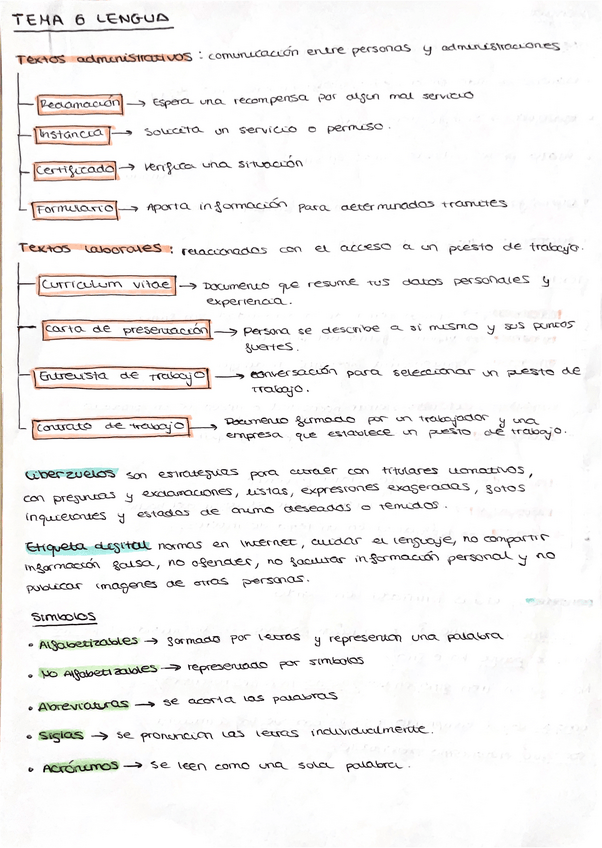 TEMA 6 LENGUA
Textos administrativos : comunicación entre personas y administraciones
Reclamación → Espera una recompensa por algún mal servicio
Instancia → Solicita un servicio o permiso.
Certificado → Verifica una situación
Formulario → Aporta información para determinados tramites
Textos laborales : relacionados con el acceso a un puesto de trabajo.
Curriculum vitae → Documento que resume tus datos personales y
experiencia.
Carta de presentación → Persona se describe a sí mismo y sus puntos
fuertes.
Entrevista de trabajo → conversación para seleccionar un puesto de
trabajo.
Contrato de trabajo → Documento firmado por un trabajador y una
empresa que establece un puesto de trabajo.
Ciberzuelos son estrategias para atraer con titulares llamativos,
con preguntas y exclamaciones, listas, expresiones exageradas, fotos
inquietantes y estados de animo deseados o temidos.
Etiqueta digital normas en Internet, cuidar el lenguaje, no compartir
información falsa, no ofender, no facilitar información personal y no
publicar imagenes de otras personas.
SIMBOLOS
• Alfabetizables → formado por letras y representan una palabra
• No Alfabetizables → representado por simbolos
• Abreviaturas → se acorta las palabras
• Siglas → se pronuncian las letras individualmente.
• Acrónimos → se leen como una sola palabra.